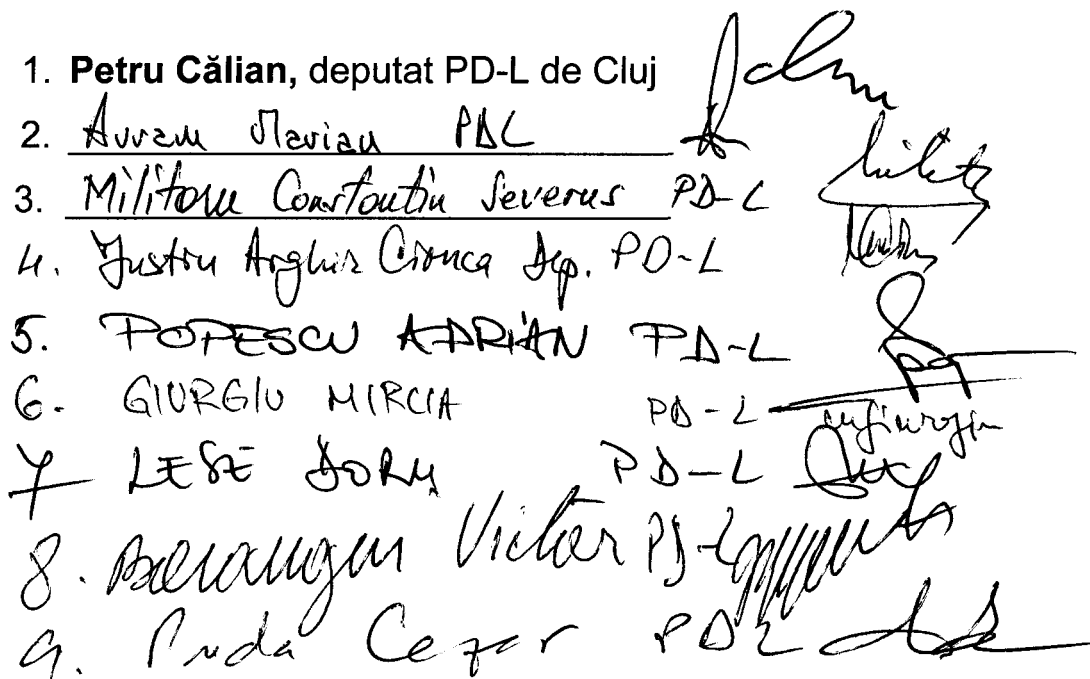 1. Petru Călian, deputat PD-L de Cluj
2. Avram Marian PDL
3. Militaru Constantin Severus PD-L
4. Justin Arghir Cionca Dep. PD-L
5. POPESCU ADRIAN PD-L
6. GIURGIU MIRCIA PD-L
7 LESE DORU PD-L
8. Victor PD-L
9. Preda Cezar PDL